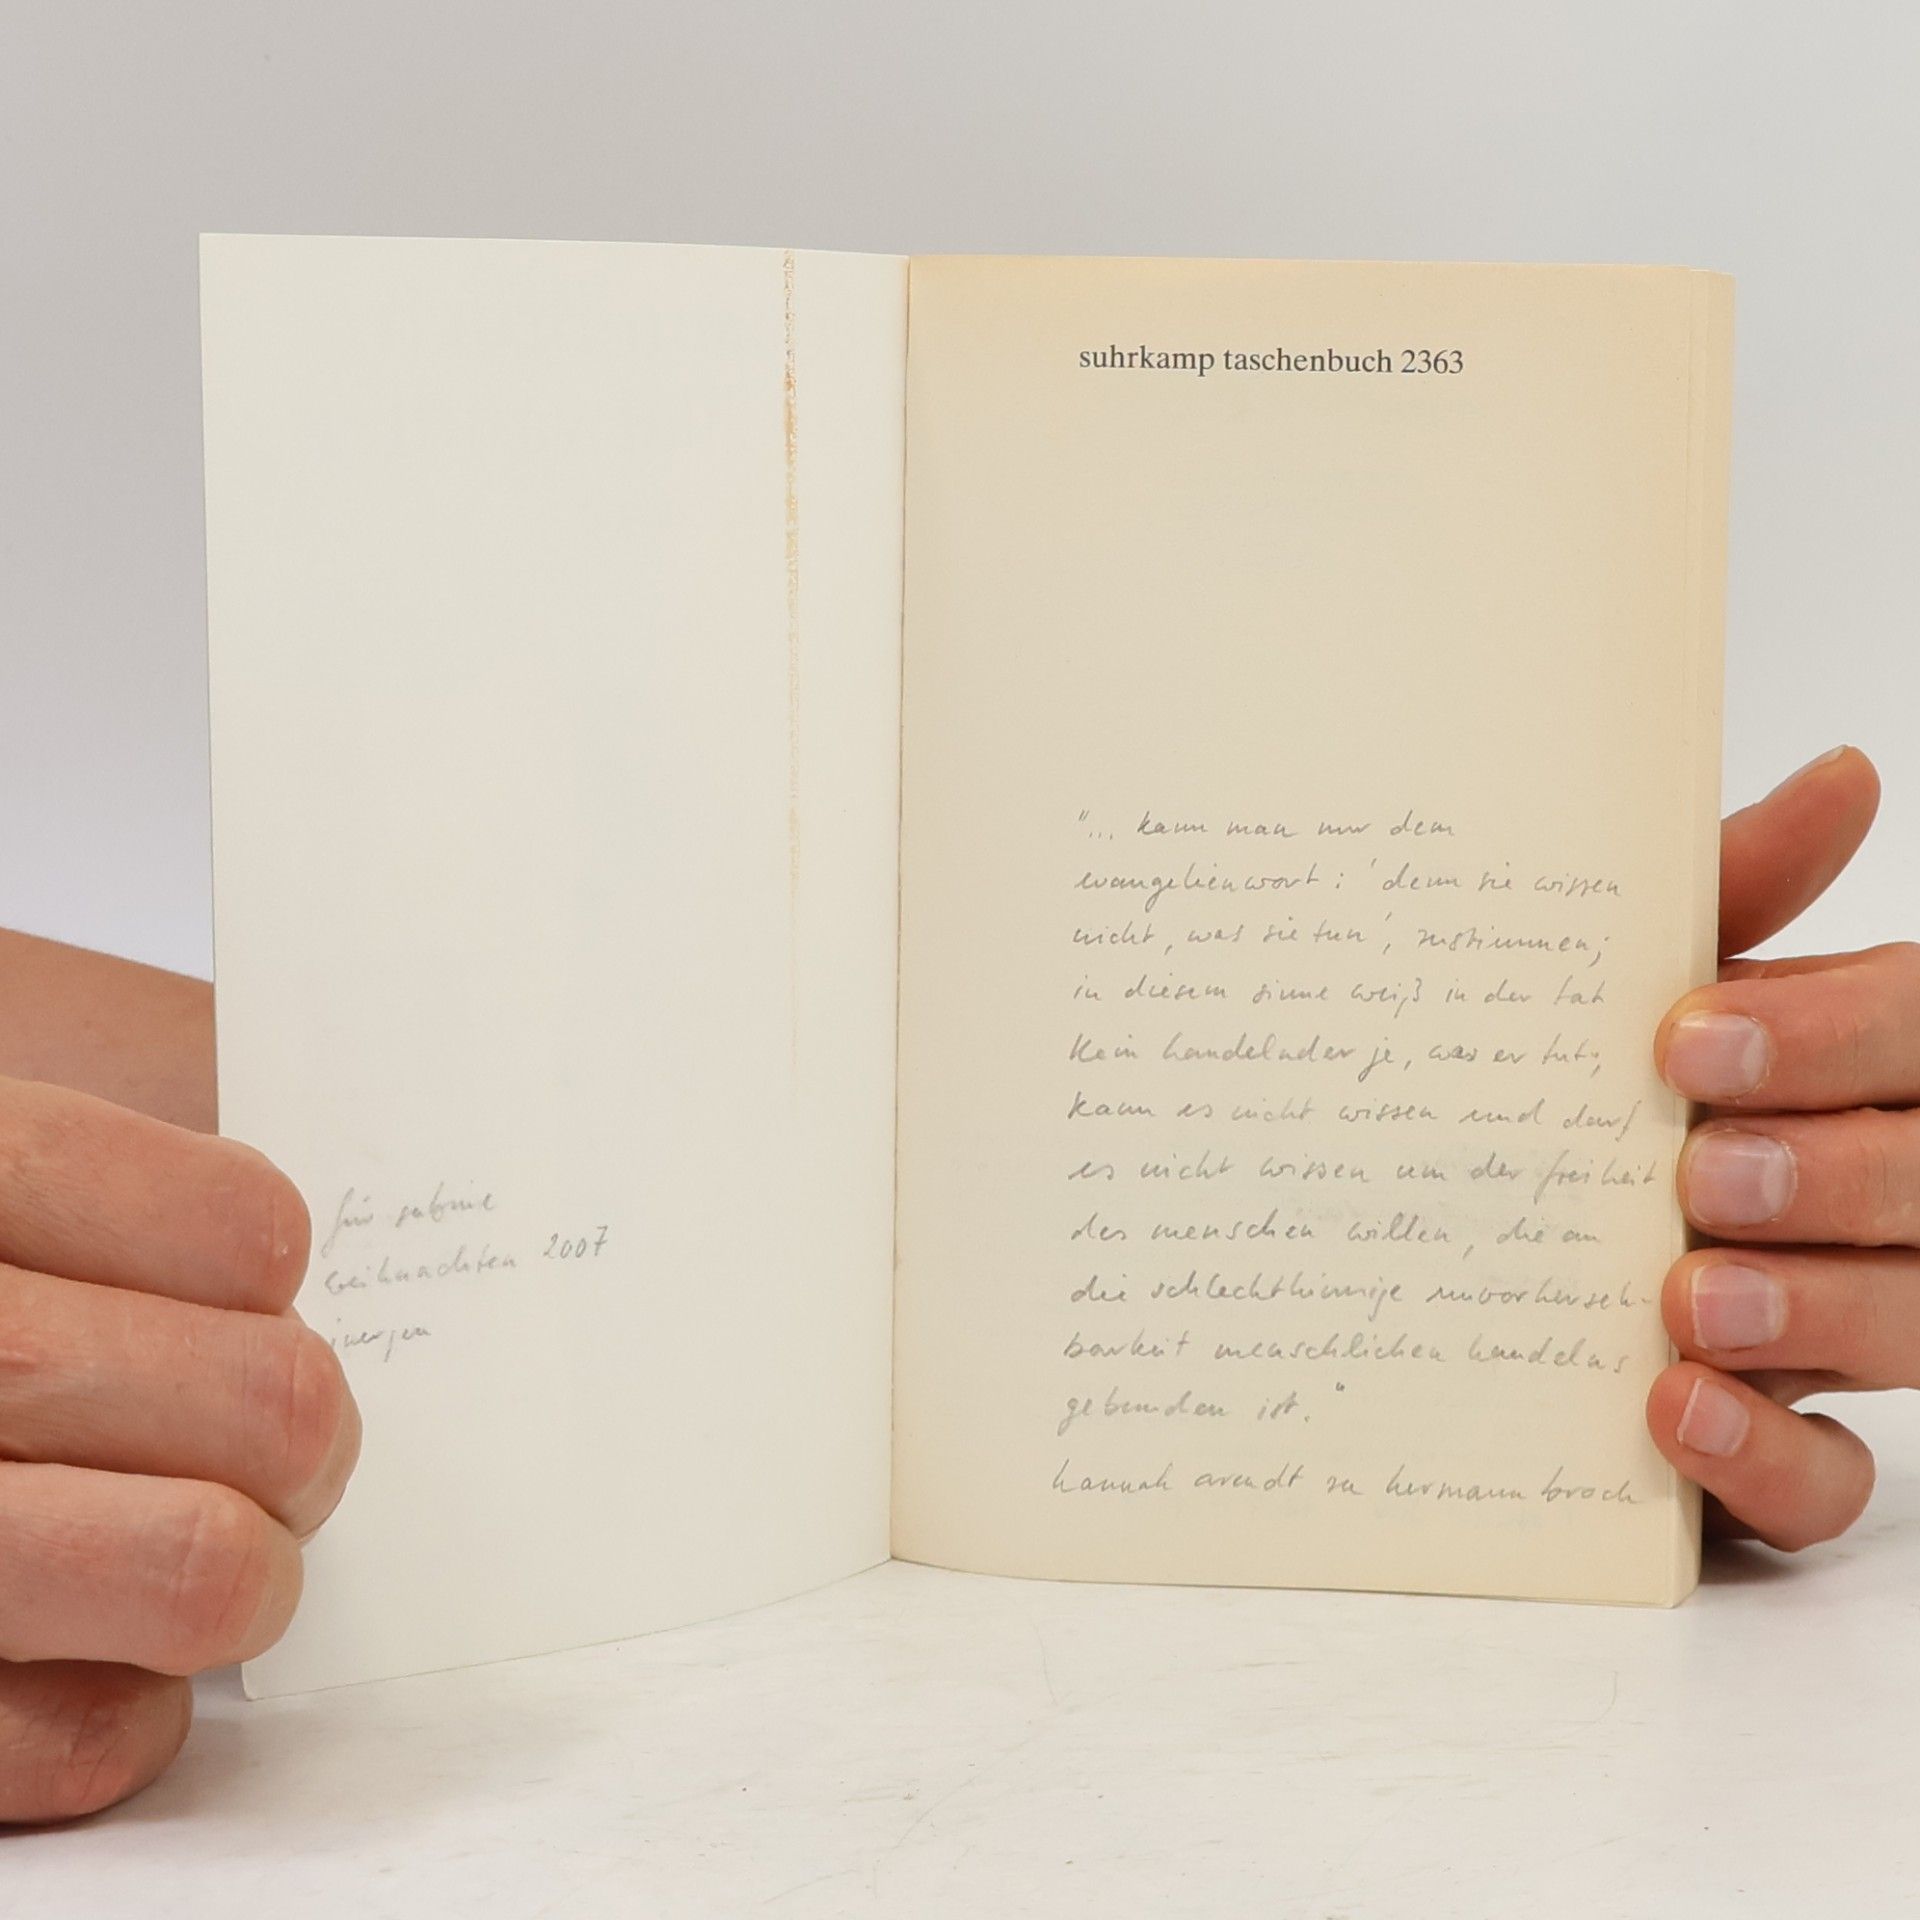 für sabine
weihnachten 2007
juergen
suhrkamp taschenbuch 2363
"... kann man nur dem
evangelienwort: 'denn sie wissen
nicht, was sie tun', zustimmen;
in diesem sinne weiß in der tat
kein handelnder je, was er tut;
kann es nicht wissen und darf
es nicht wissen um der freiheit
des menschen willen, die an
die schlechthinnige unvorherseh-
barkeit menschlichen handelns
gebunden ist."
hannah arendt zu hermann broch